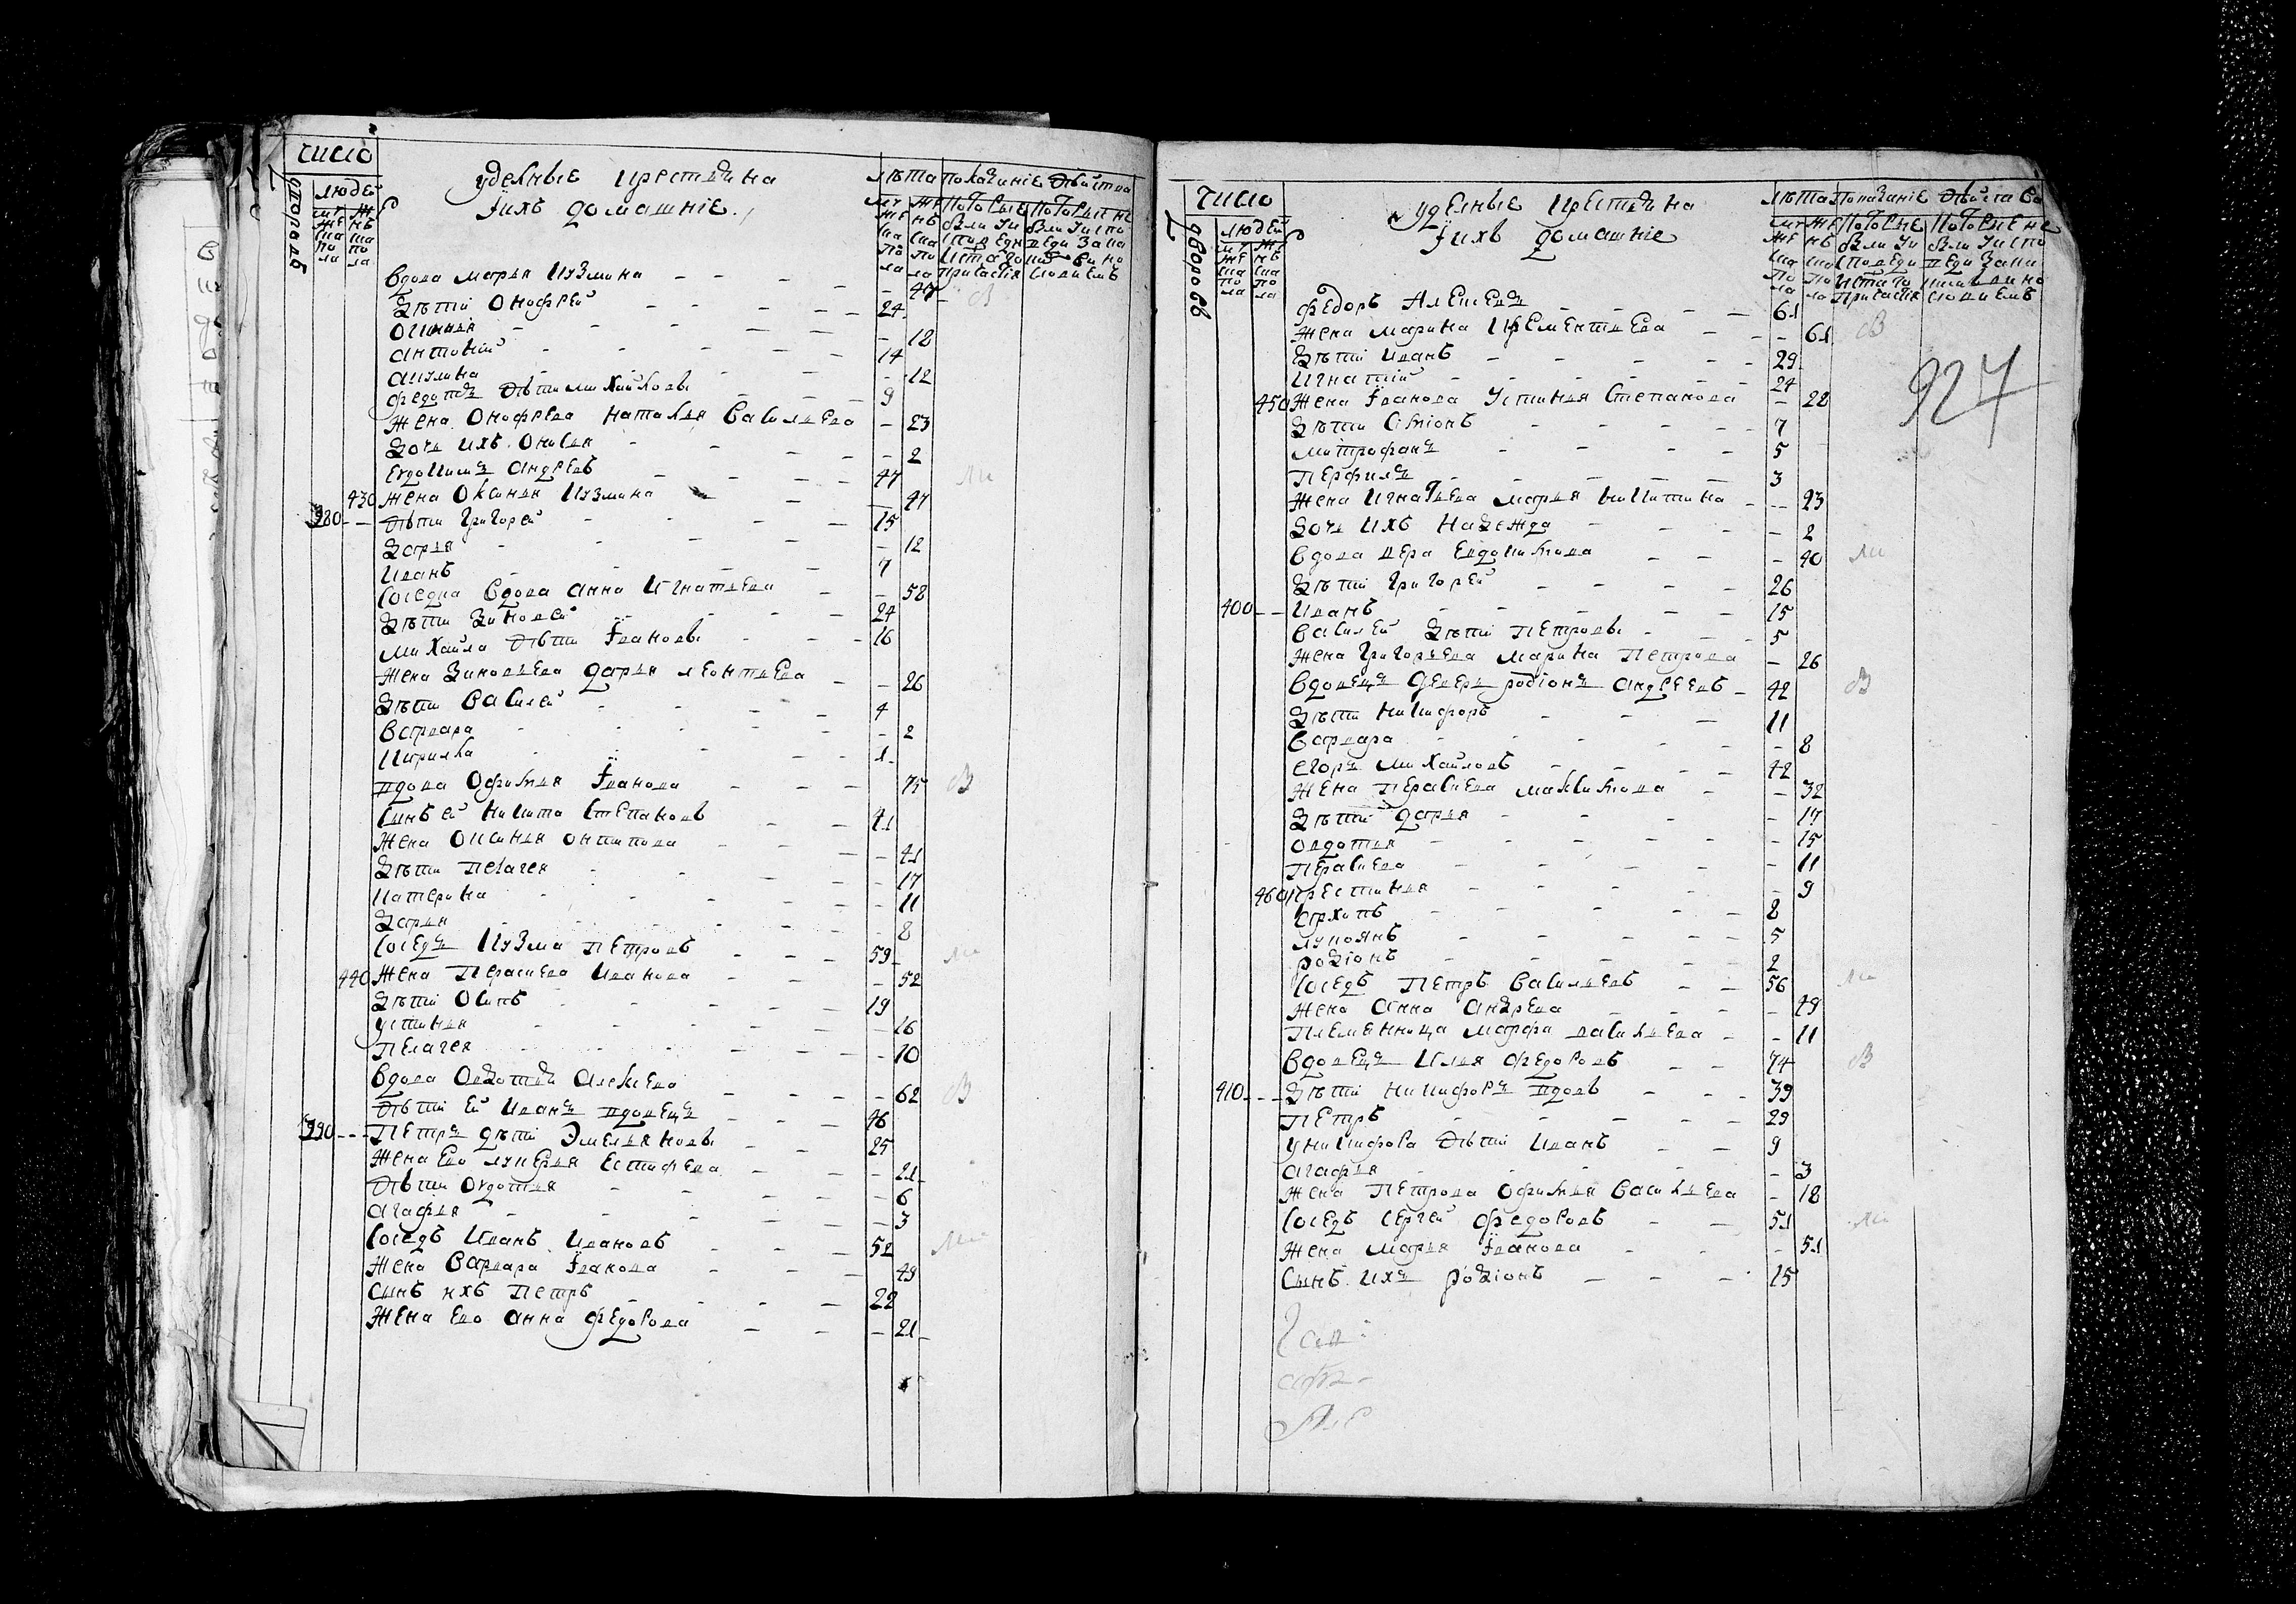 число
удельные крестьяна
і ихъ домашніе
лѣта покаяніе двойства
дворовъ
людей
вдова марья кузмина 47
дѣти онофрей 24
оксинья 18
антоній 14
акулина 12
федотъ дѣти михайловы 9
жена онофрева наталья васильева 23
дочь ихъ онисья 2
евдокимъ андреевъ 47
430 жена оксинья кузмина 47
380 дѣти григорей 15
дарья 12
иванъ 7
соседка вдова анна игнатьева 58
дѣти зиновей 24
михайла дѣти іѵановы 16
жена зиновьева дарья леонтьева 26
дѣти василей 4
варвара 2
кирилла 1
вдова офимья іѵанова 75
сынъ ей никита степановъ 41
жена оксинья онтипова 41
дѣти пелагея 17
катерина 11
дарья 8
соседъ кузма петровъ 59
440 жена параскева иванова 52
дѣти осипъ 19
устинья 16
пелагея 10
вдова овдотья алексеева 62
дѣти ей иванъ вдовецъ 46
390 петръ дѣти эмельяновы 25
жена ево лукерья естифеева 21
дѣти овдотья 6
агафья 3
соседъ иванъ ивановъ 52
жена варвара іѵанова 49
сынъ ихъ петръ 22
жена ево анна федорова 21
число
удельные крестьяна
і ихъ домашніе
лѣта покаяніе двойства
дворовъ
людей
927
федоръ алексеевъ 61
жена марина клементьева 61
дѣти иванъ 29
игнатій 24
450 жена іѵанова устинья степанова 28
дѣти симіонъ 7
митрофанъ 5
перфилъ 3
жена игнатьева марья никитина 23
дочь ихъ надежда 2
вдова вера евдокимова 40
дѣти григорей 26
400 иванъ 15
василей дѣти петровы 5
жена григорьева марина петрова 26
вдовецъ деверь родіонъ андреевъ 42
дѣти никифоръ 11
варвара 8
егоръ михайловъ 42
жена парасkева максимова 32
дѣти дарья 17
овдотья 15
парасkева 11
460 крестинья 9
архипъ 8
лукоянъ 5
родіонъ 2
соседъ петръ васильевъ 56
жена анна андреева 49
племенница марфа васильева 11
вдовецъ илья федоровъ 74
410 дѣти никифоръ вдовъ 39
петръ 29
у никифора дѣти иванъ 9
агафья 3
жена петрова офимья васильева 18
соседъ сергей федоровъ 51
жена марья іѵанова 51
сынъ ихъ родіонъ 15